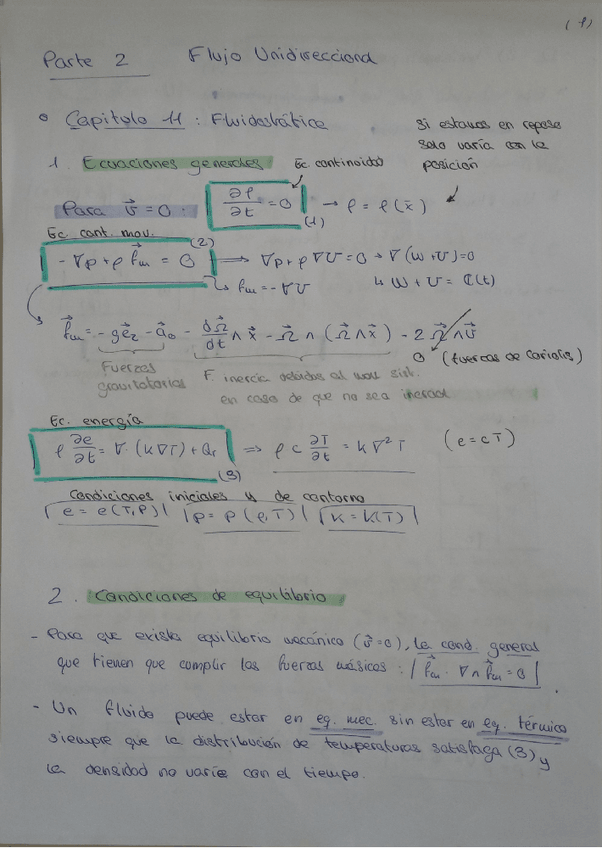 (1)
Parte 2 Flujo Unidireccional
• Capitulo 11 : Fluidostática
Si estamos en reposo
solo varía con la
posición
1. Ecuaciones generales
Ec. continuidad
Para v⃗ = 0 : ∂ρ/∂t = 0 → ρ = ρ(x̄)
(1)
Ec. cant. mov.
(2)
- ∇p + ρ f⃗m = 0 → ∇p + ρ ∇U = 0 → ∇(w + U) = 0
↳ fm = - ∇U ↳ w + U = C(t)
f⃗m = - g e⃗z - a⃗o - dΩ⃗/dt ∧ x⃗ - Ω⃗ ∧ (Ω⃗ ∧ x⃗) - 2 Ω⃗ ∧ v⃗
0 (fuerzas de coriolis)
Fuerzas
gravitatorias
F. inercia debidas al mov. sist.
en caso de que no sea inercial
Ec. energía
ρ ∂e/∂t = ∇· (k∇T) + Qr ⇒ ρ c ∂T/∂t = k ∇² T (e = cT)
(3)
Condiciones iniciales y de contorno
| e = e(T,P) | | p = p (ρ,T) | | k = k(T) |
2. Condiciones de equilibrio
- Para que exista equilibrio mecánico (v⃗ = 0), la cond. general
que tienen que cumplir las fuerzas másicas : | f⃗m · ∇ ∧ f⃗m = 0 |
- Un fluido puede estar en eq. mec. sin estar en eq. térmico
siempre que la distribución de temperaturas satisfaga (3) y
la densidad no varíe con el tiempo.